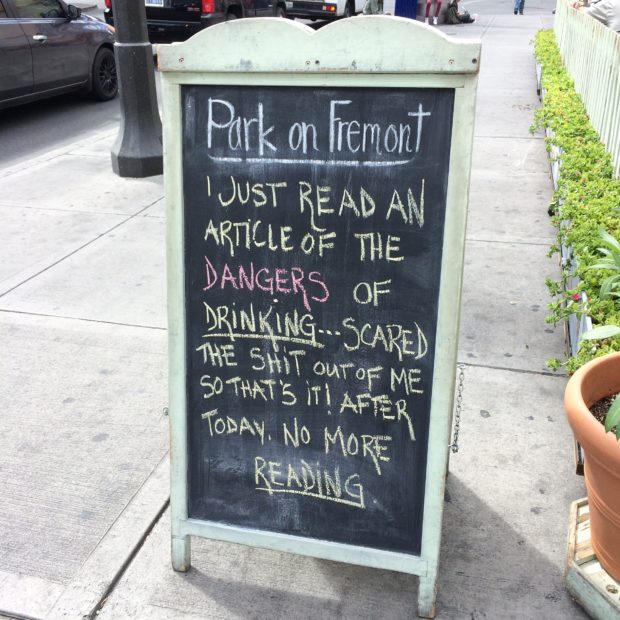 Park on Fremont
I JUST READ AN
ARTICLE OF THE
DANGERS OF
DRINKING...SCARED
THE SHIT OUT OF ME
SO THAT'S IT! AFTER
TODAY. NO MORE
READING.